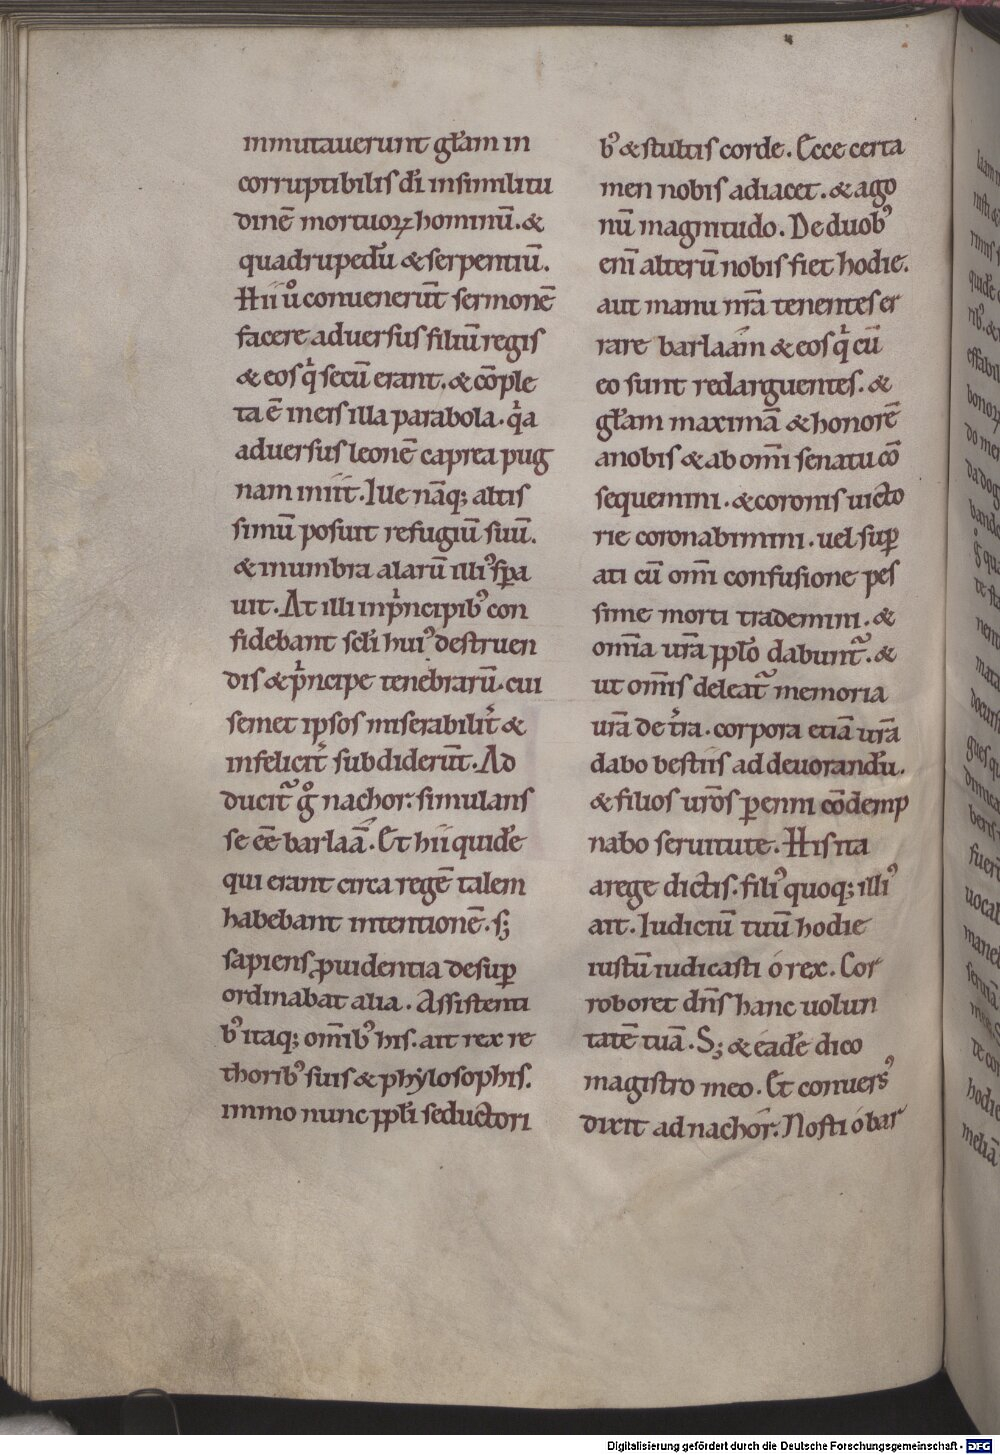 inmutauerunt gl̄am in
corruptibilis dī insimilitu
dinē mortuoꝝ hominū. &
quadrupedū & serpentiū.
Hii ů conuenerūt sermonē
facere aduersus filiū regis
& eos q̇ secū erant. & cōple
ta ē ineis illa parabola. q̇a
aduersus leonē caprea pug
nam iniit. Iue nāq; altis
simū posuit refugiū suū.
& inumbra alarū illiꝰ spa
uit. At illi inpͥncipibꝰ con
fidebant scl̄i huiꝰ destruen
dis & pͥncipe tenebrarū. cui
semet ipsos miserabilit̄ &
infelicit̄ subdiderūt. Ad
ducit᷑ gͦ nachor. simulans
se eē barlaā. Et hii quidē
qui erant circa regē talem
habebant intentionē. s;
sapiens ꝓuidentia desuꝑ
ordinabat alia. Assistenti
bꝰ itaq; om̄ibꝰ his. ait rex re
thoribꝰ suis & phẏlosophis.
immo nunc ppl̄i seductori
bꝰ & stultis corde. Ecce certa
men nobis adiacet. & ago
nū magnitudo. De duobꝰ
enī alterū nobis fiet hodie.
aut manu nr̄a tenentes er
rare barlaam & eos q̇ cū
eo sunt redarguentes. &
gl̄am maximā & honorē
anobis & ab om̄i senatu cō
sequemini. & coronis uicto
rie coronabimini. uel suꝑ
ati cū om̄i confusione pes
sime morti trademini. &
omīa ur̄a ppl̄o dabunt᷑. &
ut om̄is deleat᷑ memoria
ur̄a de t̄ra. corpora etiā ur̄a
dabo bestiis ad deuorandū.
& filios ur̄os ꝑenni cōdemp
nabo seruitute. His ita
arege dictis. filiꝰ quoq; illiꝰ
ait. Iudiciū tuū hodie
iustū iudicasti o rex. Cor
roboret dn̄s hanc uolun
tatē tuā. S; & eadē dico
magistro meo. Et conuersꝰ
dixit ad nachor. Nosti o bar
Digitalisierung gefördert durch die Deutsche Forschungsgemeinschaft - DFG